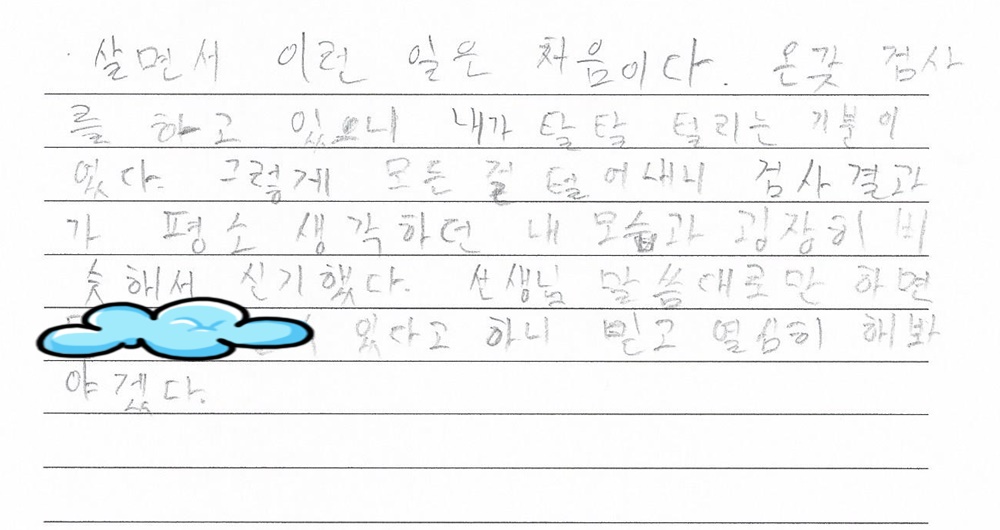 살면서 이런 일은 처음이다. 온갖 검사
를 하고 있으니 내가 탈탈 털리는 기분이
었다. 그렇게 모든 걸 털어내니 검사결과
가 평소 생각하던 내 모습과 굉장히 비
슷해서 신기했다. 선생님 말씀대로만 하면
있다고 하니 믿고 열심히 해봐
야겠다.